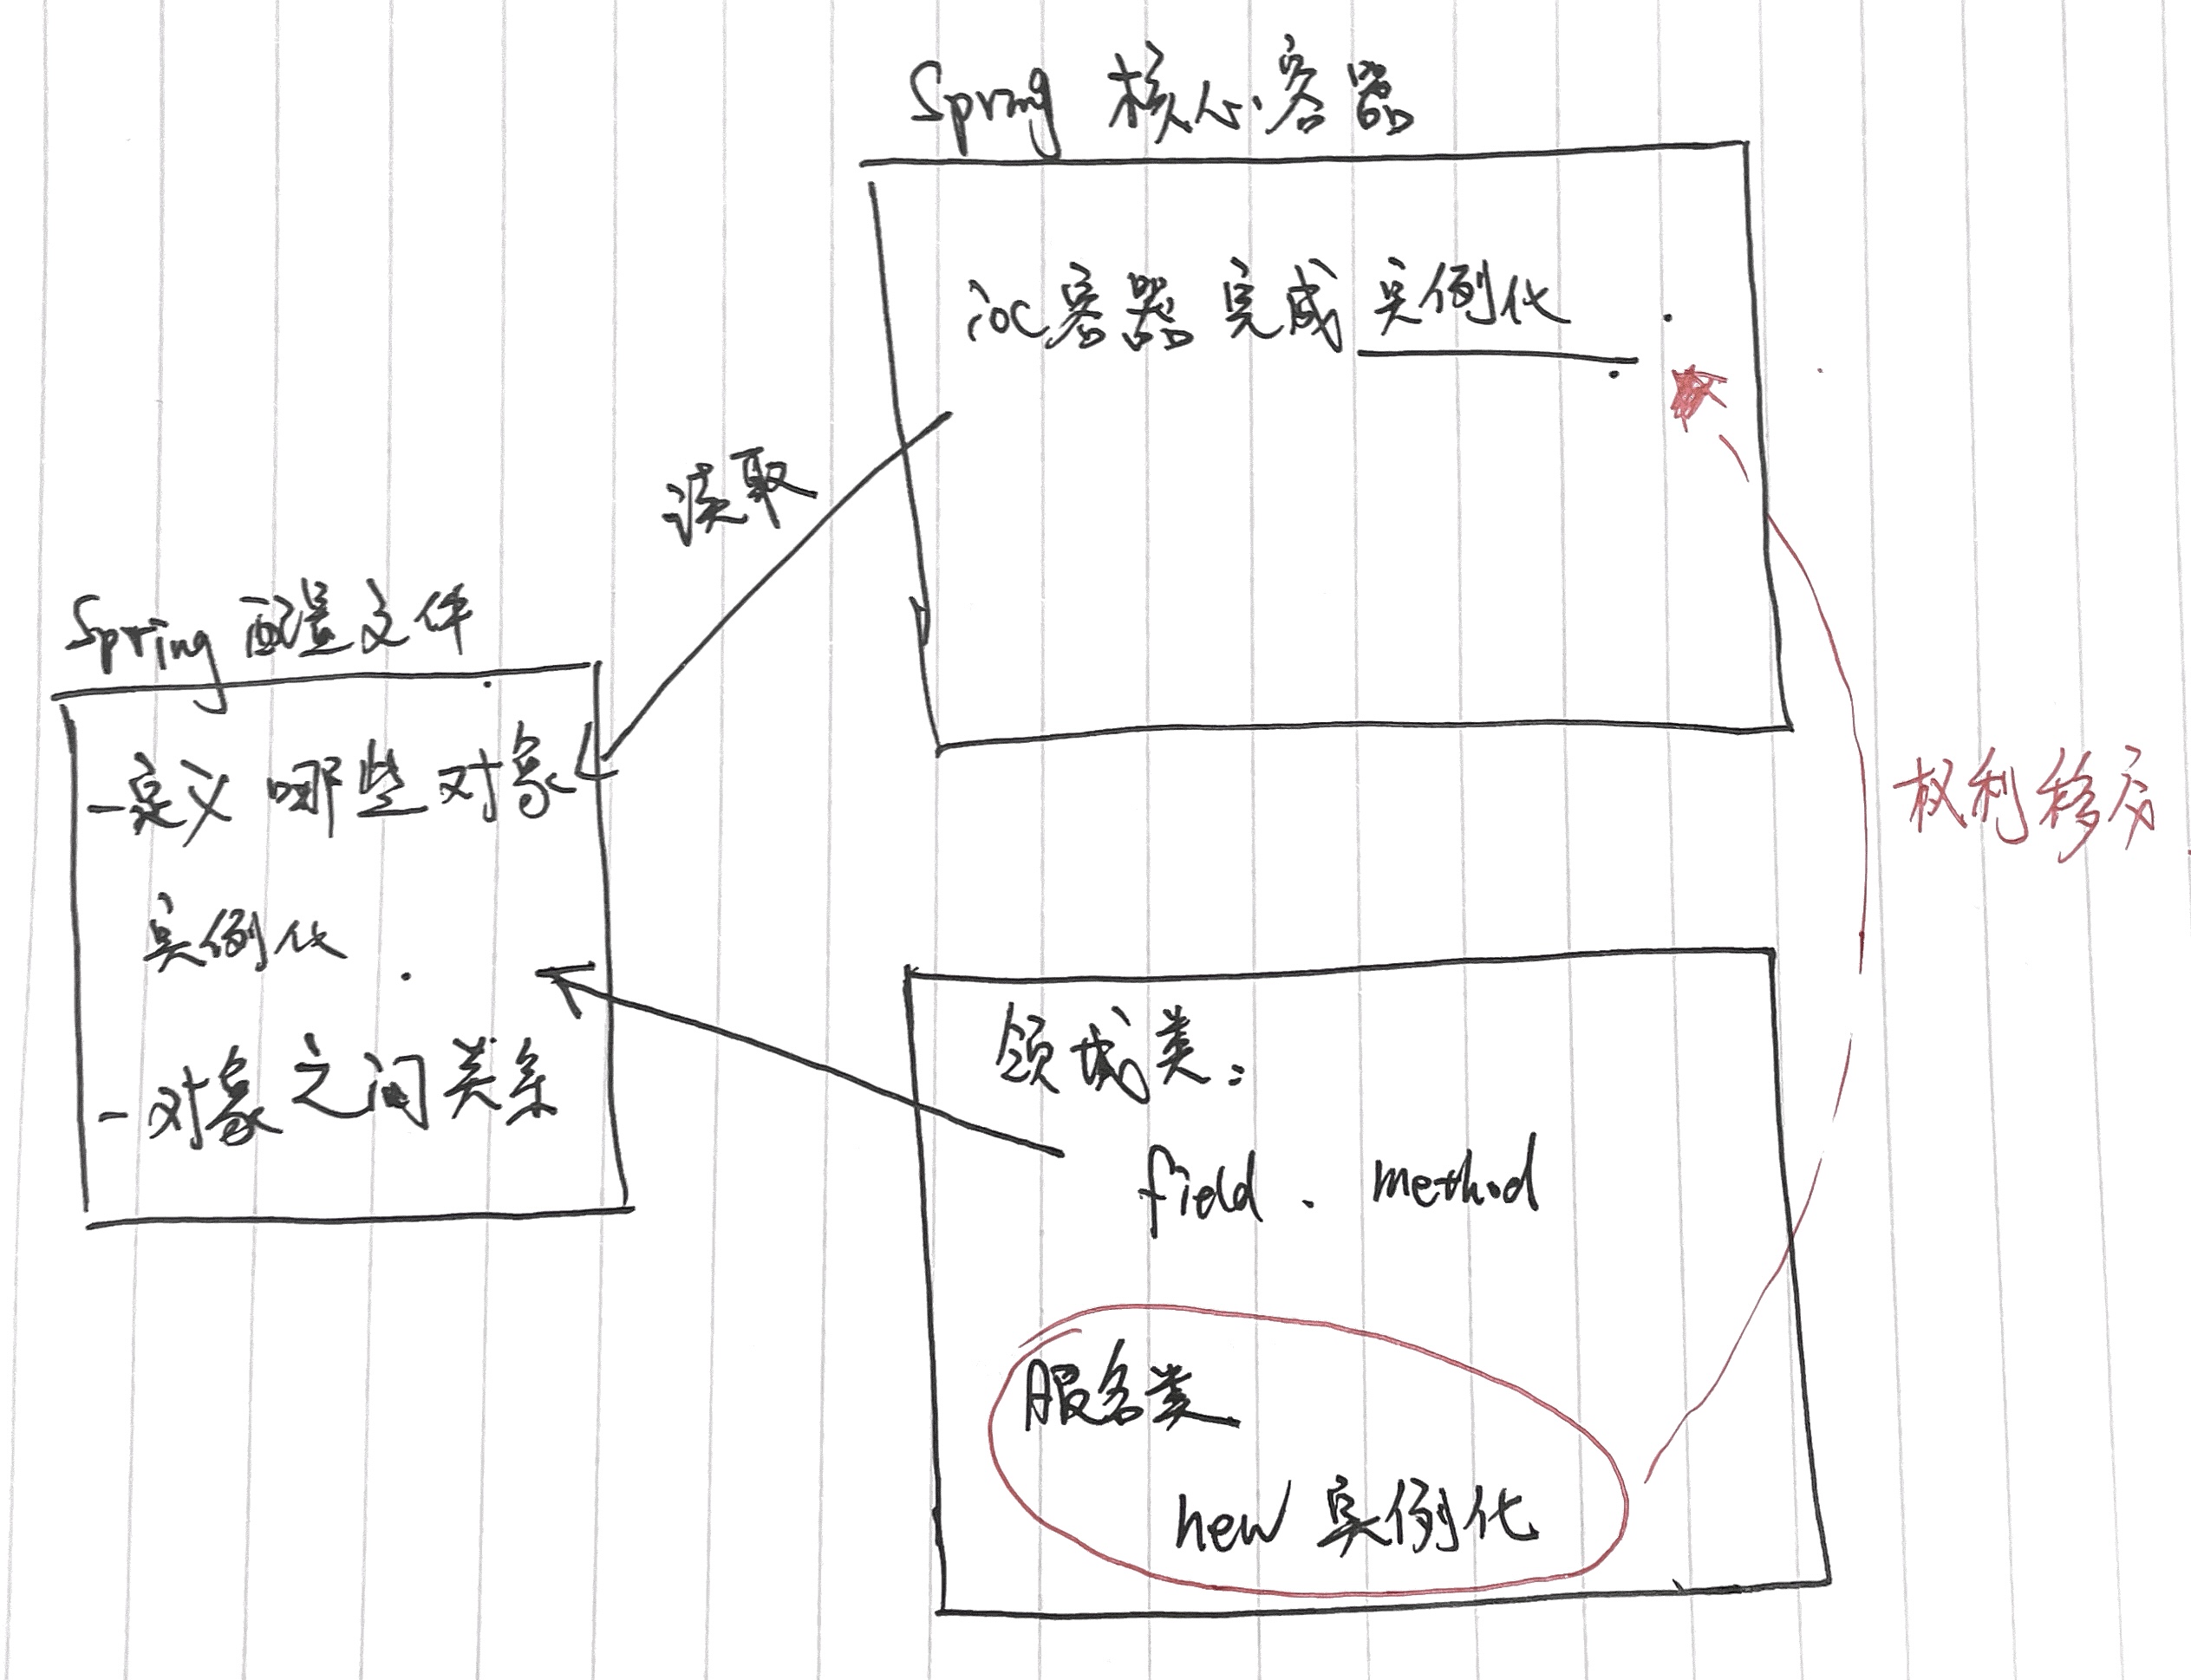 Spring 核心容器
ioc容器 完成 实例化
读取
Spring 配置文件
-定义 哪些 对象
实例化
-对象 之间 关系
权利移交
领域类:
field . method
服务类
new 实例化